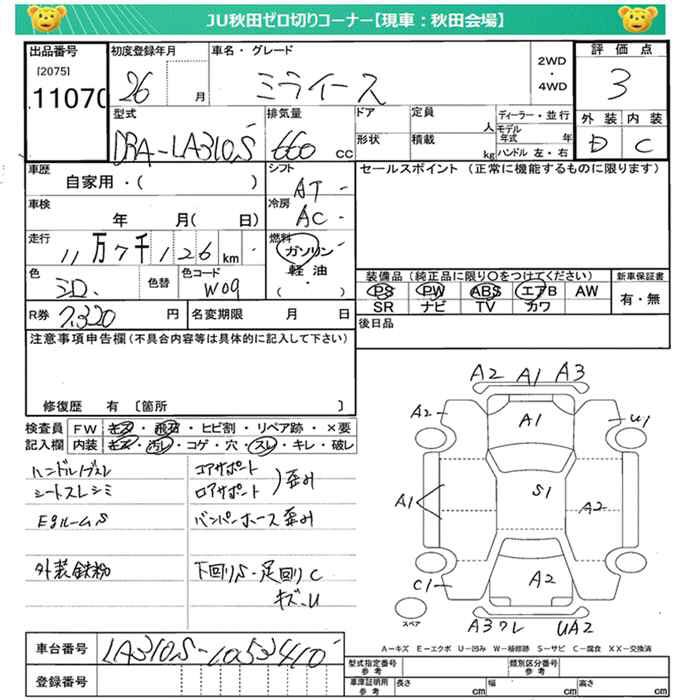 JU秋田ゼロ切りコーナー【現車：秋田会場】
出品番号 初度登録年月 車名・グレード 2WD・4WD 評価点
[2075]
11070 26 月 ミライース 3
型式 排気量 ドア 定員 人 ディーラー・並行 外装 内装
DBA-LA310S 660 cc 形状 積載 kg モデル年式 年 ハンドル 左・右 D C
車歴 シフト セールスポイント (正常に機能するものに限ります)
自家用・( ) AT
車検 冷房
年 月( 日) AC
走行 燃料
11万7千126km ガソリン・軽油・( )
色 色替 色コード 装備品 (純正品に限り○をつけてください) 新車保証書
シロ W09 PS PW ABS エアB AW 有・無
SR ナビ TV カワ
R券 7,320 円 名変期限 月 日 後日品
注意事項申告欄 (不具合内容等は具体的に記入して下さい)
修復歴 有 〔箇所 〕
検査員記入欄 FW キズ・飛石・ヒビ割・リペア跡・×要
内装 キズ・汚レ・コゲ・穴・スレ・キレ・破レ
ハンドルノブスレ コアサポート
シートスレシミ ロアサポート ) 歪み
Egルーム S バンパーホース歪み
外装鉄粉 下回りS・足回りC
キズ・U
A2 A1 A3
A2 A1 U1
A1 S1 A2
C1 A2
スペア A3ワレ UA2
A－キズ E－エクボ U－凹み W－補修跡 S－サビ C－腐食 XX－交換済
車台番号 LA310S-1053410
登録番号
型式指定番号 参考 類別区分番号 参考
車庫証明用 参考 長さ cm 幅 cm 高さ cm